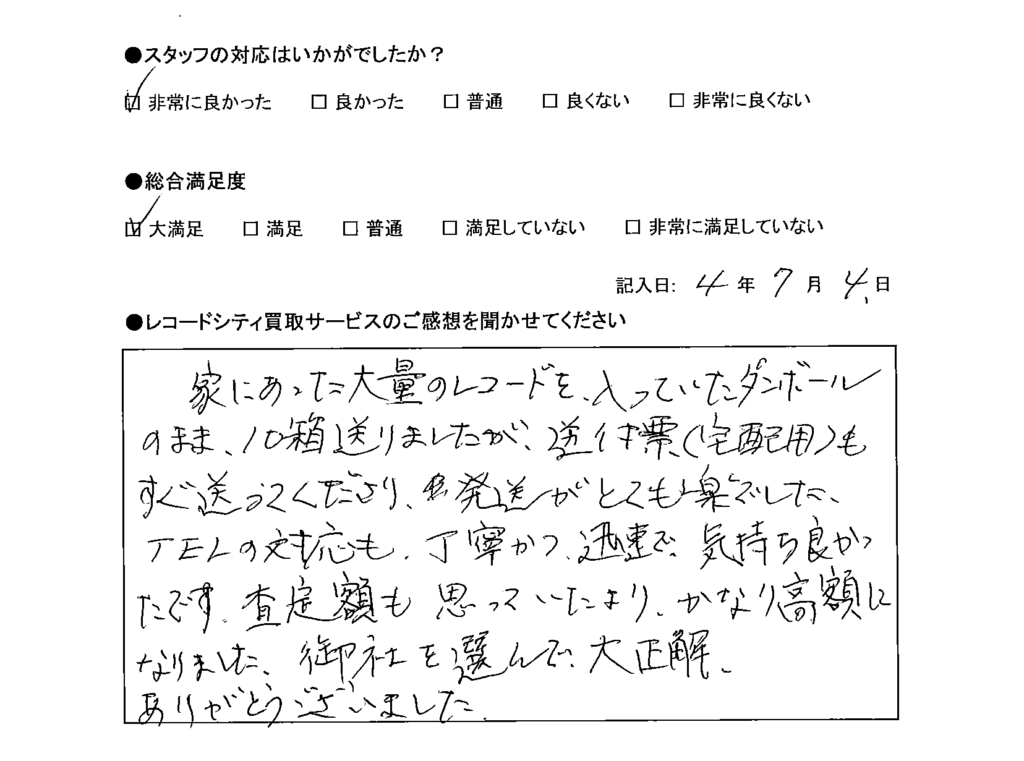 ●スタッフの対応はいかがでしたか？
☑ 非常に良かった □ 良かった □ 普通 □ 良くない □ 非常に良くない
●総合満足度
☑ 大満足 □ 満足 □ 普通 □ 満足していない □ 非常に満足していない
記入日: 4 年 7 月 4 日
●レコードシティ買取サービスのご感想を聞かせてください
家にあった大量のレコードを、入っていたダンボール
のまま、10箱送りましたが、送付票(宅配用)も
すぐ送ってくださり、発送がとても楽でした。
TELの対応も、丁寧かつ、迅速で、気持ち良かっ
たです。査定額も思っていたより、かなり高額に
なりました。御社を選んで、大正解。
ありがとうございました。